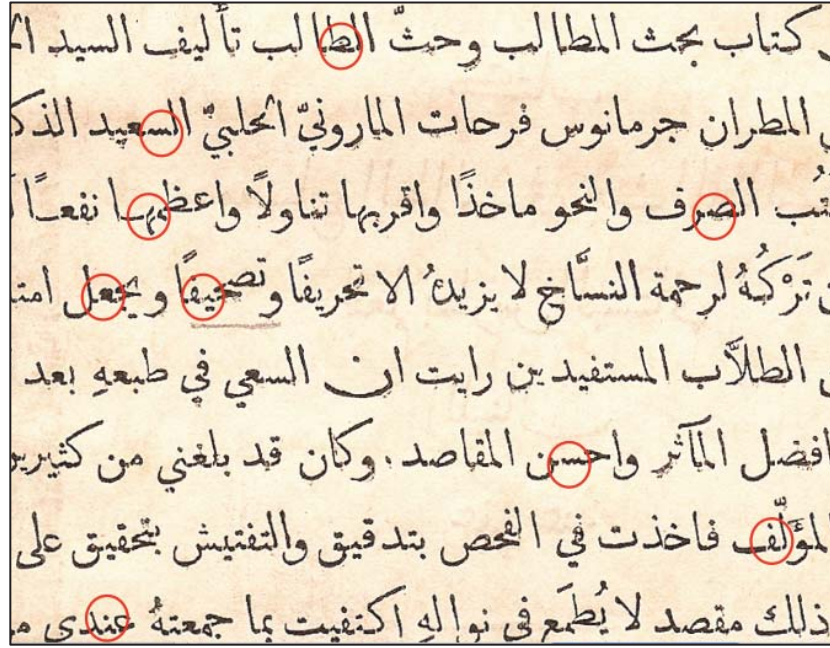 كتاب بحث المطالب وحثّ الطالب تأليف السيد
المطران جرمانوس فرحات المارونيّ الحلبيّ السعيد الذكر
الصرف والنحو ماخذًا واقربها تناولًا واعظمها نفعًا
تَرْكَهُ لرحمة النسَّاخ لا يزيدهُ الا تحريفًا وتصحيفًا ويجعل
الطلاَّب المستفيدين رايت ان السعي في طبعهِ بعد
افضل المآثر واحسن المقاصد. وكان قد بلغني من كثيرين
المؤَلّف فاخذت في الفحص بتدقيق والتفتيش بتحقيق على
ذلك مقصد لا يُطمَع في نوالهِ اكتفيت بما جمعتهُ عندي